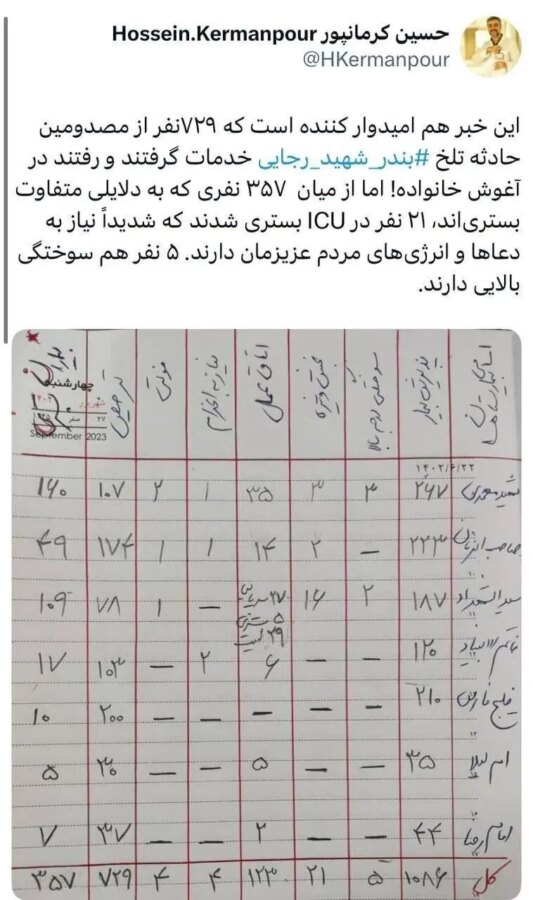 حسین کرمانپور Hossein.Kermanpour
@HKermanpour
این خبر هم امیدوار کننده است که ۷۲۹نفر از مصدومین
حادثه تلخ #بندر_شهید_رجایی خدمات گرفتند و رفتند در
آغوش خانواده! اما از میان ۳۵۷ نفری که به دلایلی متفاوت
بستری‌اند، ۲۱ نفر در ICU بستری شدند که شدیداً نیاز به
دعاها و انرژی‌های مردم عزیزمان دارند. ۵ نفر هم سوختگی
بالایی دارند.
اسامی بیمارستان‌ها پذیرش بیمار سوختگی درجه بالا بخش ویژه اتاق عمل نیاز به اعزام فوتی ترخیص
چهارشنبه
September 2023
۱۴۰۲/۶/۲۲
شهید محمدی ۲۶۷ ۳ ۳ ۳۵ ۱ ۲ ۱۰۷ ۱۶۰
صاحب الزمان ۲۲۳ — ۲ ۱۴ ۱ ۱ ۱۷۴ ۴۹
سید الشهداء ۱۸۷ ۲ ۱۶ — ۱ ۷۸ ۱۰۹
خاتم الانبیاء ۱۲۰ — — ۶ ۲ — ۱۰۳ ۱۷
خلیج فارس ۲۱۰ — — — — — ۲۰۰ ۱۰
ام لیلا ۳۵ — — ۵ — — ۳۰ ۵
امام رضا ۴۴ — — ۲ — — ۳۷ ۷
کل ۱۰۸۶ ۵ ۲۱ ۱۲۳ ۴ ۴ ۷۲۹ ۳۵۷